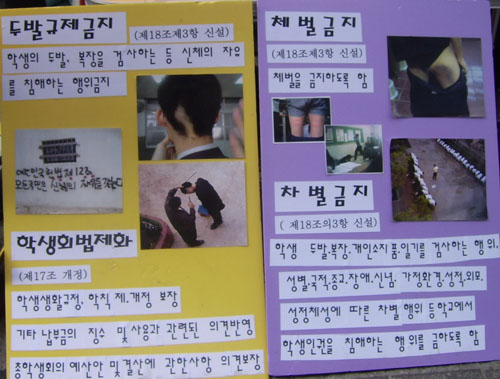 두발규제금지
(제18조제3항 신설)
학생의 두발, 복장을 검사하는 등 신체의 자유
를 침해하는 행위금지
대한민국헌법 제12조
모든국민은 신체의 자유를 갖는다
학생회법제화
(제17조 개정)
학생생활규정, 학칙 제·개정 보장
기타 납부금의 징수 및 사용과 관련된 의견반영
총학생회의 예산안 및 결산에 관한사항 의견보장
체벌금지
(제18조제3항 신설)
체벌을 금지하도록 함
차별금지
(제18조의3항 신설)
학생 두발·복장·개인소지품·일기를 검사하는 행위,
성별·국적·종교·장애·신념·가정환경·성적·외모,
성정체성에 따른 차별 행위 등학교에서
학생인권을 침해하는 행위를 금하도록 함